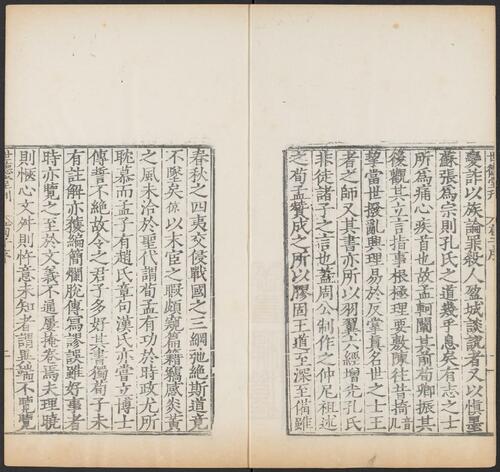 變詐以族論罪殺人盈城談說者又以慎墨
蘇張為宗則孔氏之道幾乎息矣有志之士
所為痛心疾首也故孟軻闡其前荀卿振其
後觀其立言指事根極理要敷陳往昔掎
挈當世撥亂興理易於反掌真名世之士王
者之師又其書亦所以羽翼六經增光孔氏
非徒諸子之言也蓋周公制作之仲尼祖述
之荀孟贊成之所以膠固王道至深至備雖
春秋之四夷交侵戰國之三綱弛絕斯道竟
不墜矣倞以末臣之暇頗窺篇籍竊感炎黃
之風未洽於聖代謂荀孟有功於時政尤所
耽慕而孟子有趙氏章句漢氏亦嘗立博士
傳習不絕故今之君子多好其書獨荀子未
有註解亦復編簡爛脫傳寫謬誤雖好事者
時亦覽之至於文義不通屢掩卷焉夫理曉
則愜心文舛則忤意未知者謂異端不覽覽